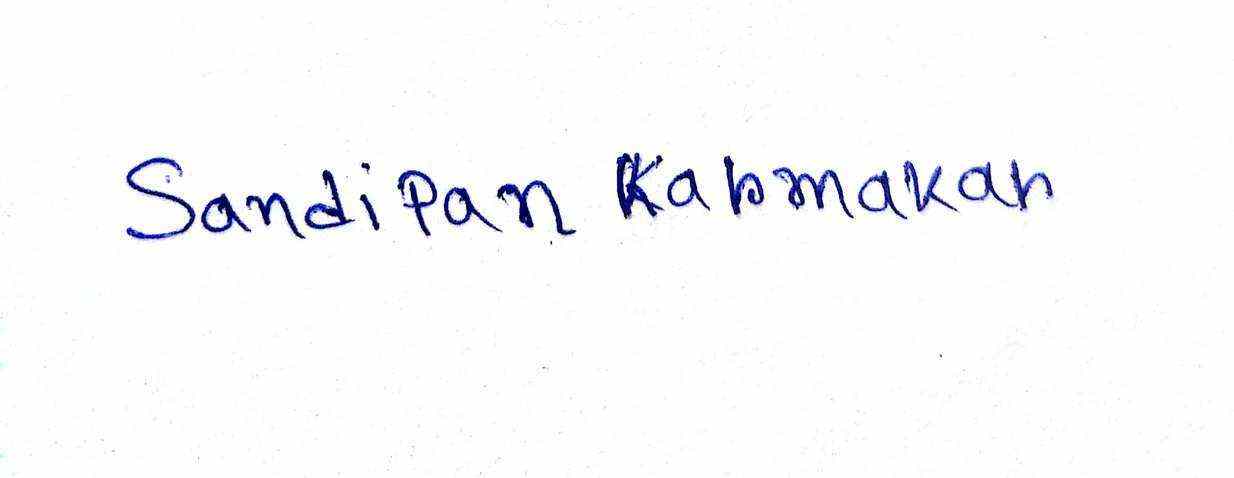 Sandipan Karmakar